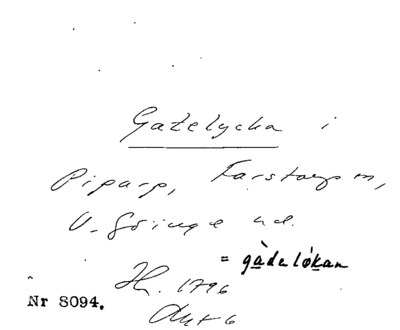 Gatelycka i
Piparp, Farstorp sn,
V. Göinge hd.
= gàdelókan
H. 1796
Akt 6
Nr 8094.